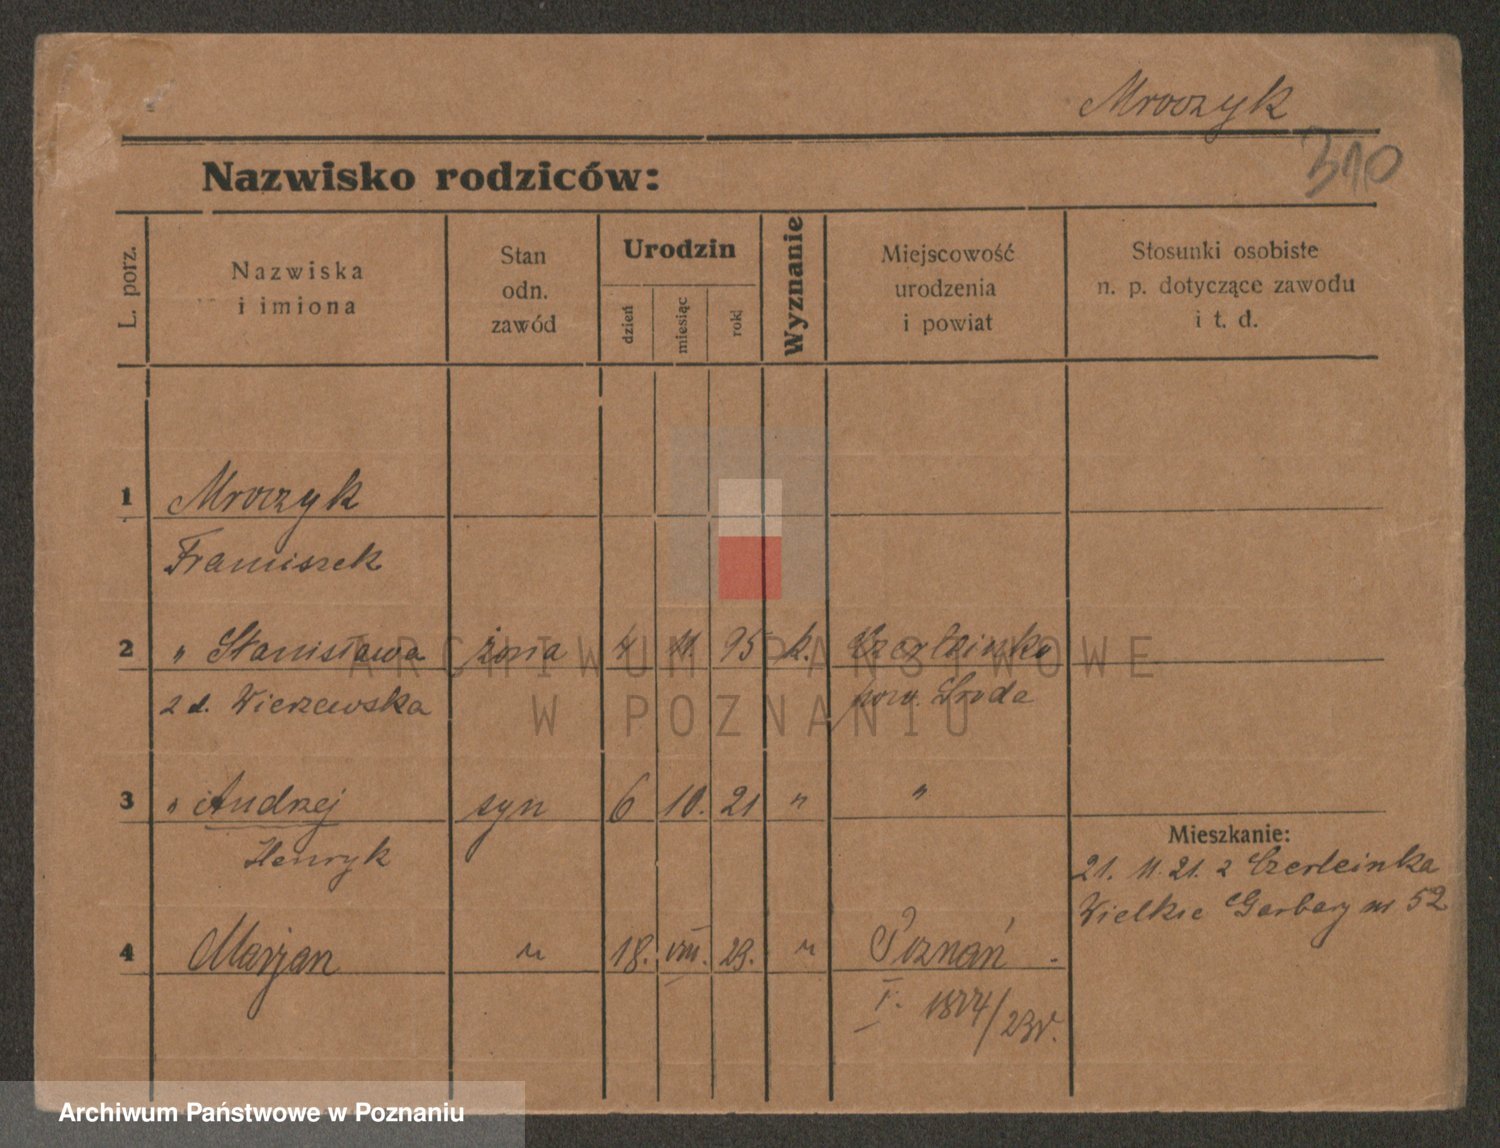 Mroczyk
310
Nazwisko rodziców:
L. porz.
Nazwiska
i imiona
Stan
odn.
zawód
Urodzin
dzień
miesiąc
rok
Wyznanie
Miejscowość
urodzenia
i powiat
Stosunki osobiste
n. p. dotyczące zawodu
i t. d.
1 Mroczyk
Franciszek
2 " Stanisława żona 4 11. 95 k. Czerleinko
z d. Wierzewska pow. Środa
3 " Andrzej syn 6 10. 21 " "
Henryk
Mieszkanie:
21. 11. 21. z Czerleinka
Wielkie Garbary nr 52
4 Marjan " 18. VIII. 23. " Poznań
I. 1874/23r.
ARCHIWUM PAŃSTWOWE
W POZNANIU
Archiwum Państwowe w Poznaniu